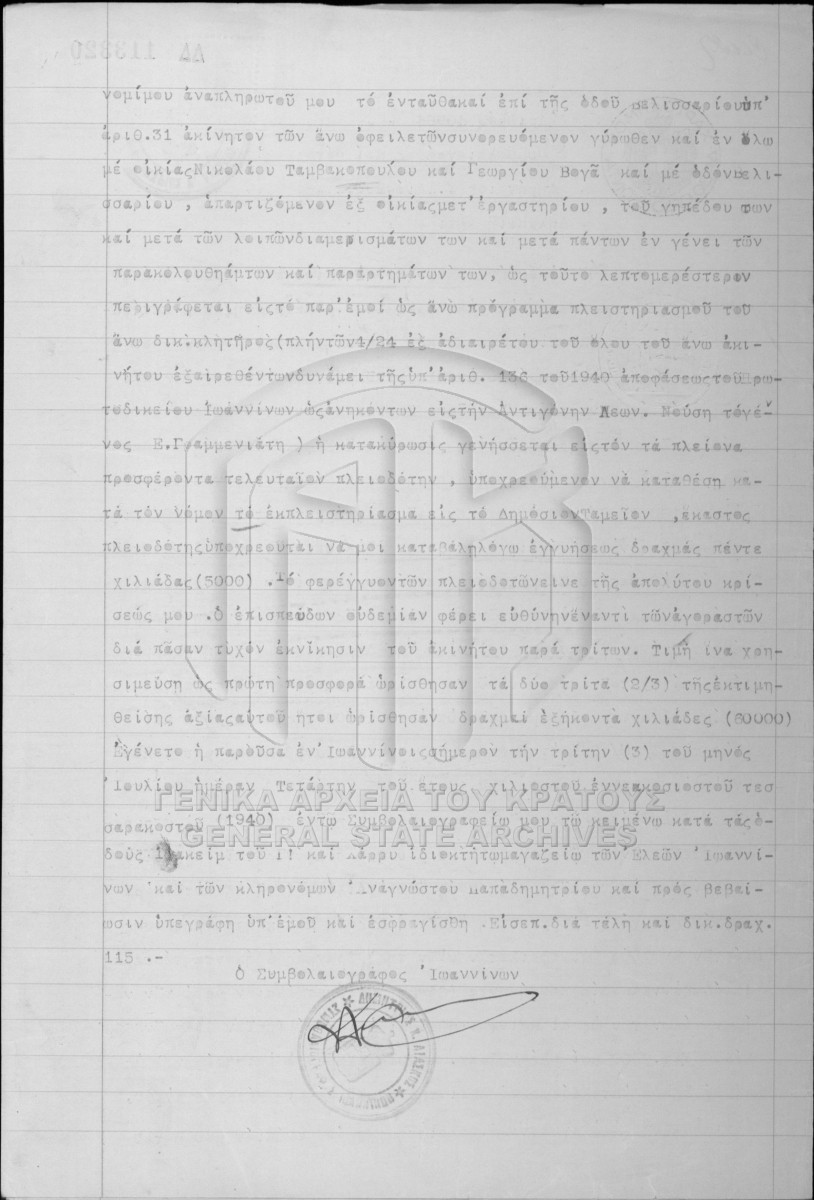 ΔΔ 113320
νομίμου ἀναπληρωτοῦ μου τό ἐνταῦθακαί ἐπί τῆς ὁδοῦ βελισσαρίουὑπ'
ἀριθ.31 ἀκίνητον τῶν ἄνω ὀφειλετῶνσυνορευόμενον γύρωθεν καί ἐν ὅλω
μέ οἰκίαςΝικολάου Ταμβακοπούλου καί Γεωργίου Βογᾶ καί μέ ὁδόνβελι-
σσαρίου , ἀπαρτιζόμενον ἐξ οἰκίαςμετ'ἐργαστηρίου , τοῦ γηπέδου των
καί μετά τῶν λοιπῶνδιαμερισμάτων των καί μετά πάντων ἐν γένει τῶν
παρακολουθηάμτων καί παραρτημάτων των, ὡς τοῦτο λεπτομερέστερον
περιγράφεται εἰςτό παρ'ἐμοί ὡς ἄνω πρόγραμμα πλειστηριασμοῦ τοῦ
ἄνω δικ.κλητῆρος(πλήντῶν4/24 ἐξ ἀδιαιρέτου τοῦ ὅλου τοῦ ἄνω ἀκι-
νήτου ἐξαιρεθέντωνδυνάμει τῆςὑπ'ἀριθ. 136 τοῦ1940 ἀποφάσεωςτοῦ Πρω-
τοδικείου Ἰωαννίνων ὡςἀνηκόντων εἰςτήν Ἀντιγόνην Λεων. Νούση τόγέ-
νος Ε.Γραμμενιάτη ) ἡ κατακύρωσις γενήσσεται εἰςτόν τά πλείονα
προσφέροντα τελευταῖον πλειοδότην , ὑποχρεούμενον νά καταθέση κα-
τά τόν νόμον τό ἐκπλειστηρίασμα εἰς τό ΔημόσιονΤαμεῖον ,ἕκαστος
πλειοδότηςὑποχρεοῦται νά μοι καταβάληλόγω ἐγγυήσεως δραχμάς πέντε
χιλιάδας(5000) .Τό φερέγγυοντῶν πλειοδοτῶνεἶνε τῆς ἀπολύτου κρί-
σεώς μου .ὁ ἐπισπεύδων οὐδεμίαν φέρει εὐθύνηνἔναντι τῶνἀγοραστῶν
διά πᾶσαν τυχόν ἐκνίκησιν τοῦ ἀκινήτου παρά τρίτων. Τιμή ἵνα χρη-
σιμεύση ὡς πρώτη προσφορά ὡρίσθησαν τά δύο τρίτα (2/3) τῆςἐκτιμη-
θείσης ἀξίαςαὐτοῦ ἤτοι ὡρίσθησαν δραχμαί ἑξήκοντα χιλιάδες (60000)
Ἐγένετο ἡ παροῦσα ἐν Ἰωαννίνοιςσήμερον τήν τρίτην (3) τοῦ μηνός
Ἰουλίου ἡμέραν Τετάρτην τοῦ ἔτους χιλιοστοῦ ἐννεακοσιοστοῦ τεσ
ΓΕΝΙΚΑ ΑΡΧΕΙΑ ΤΟΥ ΚΡΑΤΟΥΣ
σαρακοστοῦ (1940) ἐντῶ Συμβολαιογραφείω μου τῶ κειμένω κατά τάςὁ-
GENERAL STATE ARCHIVES
δούς Ἰωακείμ τοῦ Γ! καί Χάρρυ ἰδιοκτήτωμαγαζείω τῶν Ἐλεῶν Ἰωαννί-
νων καί τῶν κληρονόμων Ἀναγνώστου Παπαδημητρίου καί πρός βεβαί-
ωσιν ὑπεγράφη ὑπ'ἐμοῦ καί ἐσφραγίσθη .Εἰσεπ.διά τέλη καί δικ.δραχ.
115 .-
ὁ Συμβολαιογράφος Ἰωαννίνων